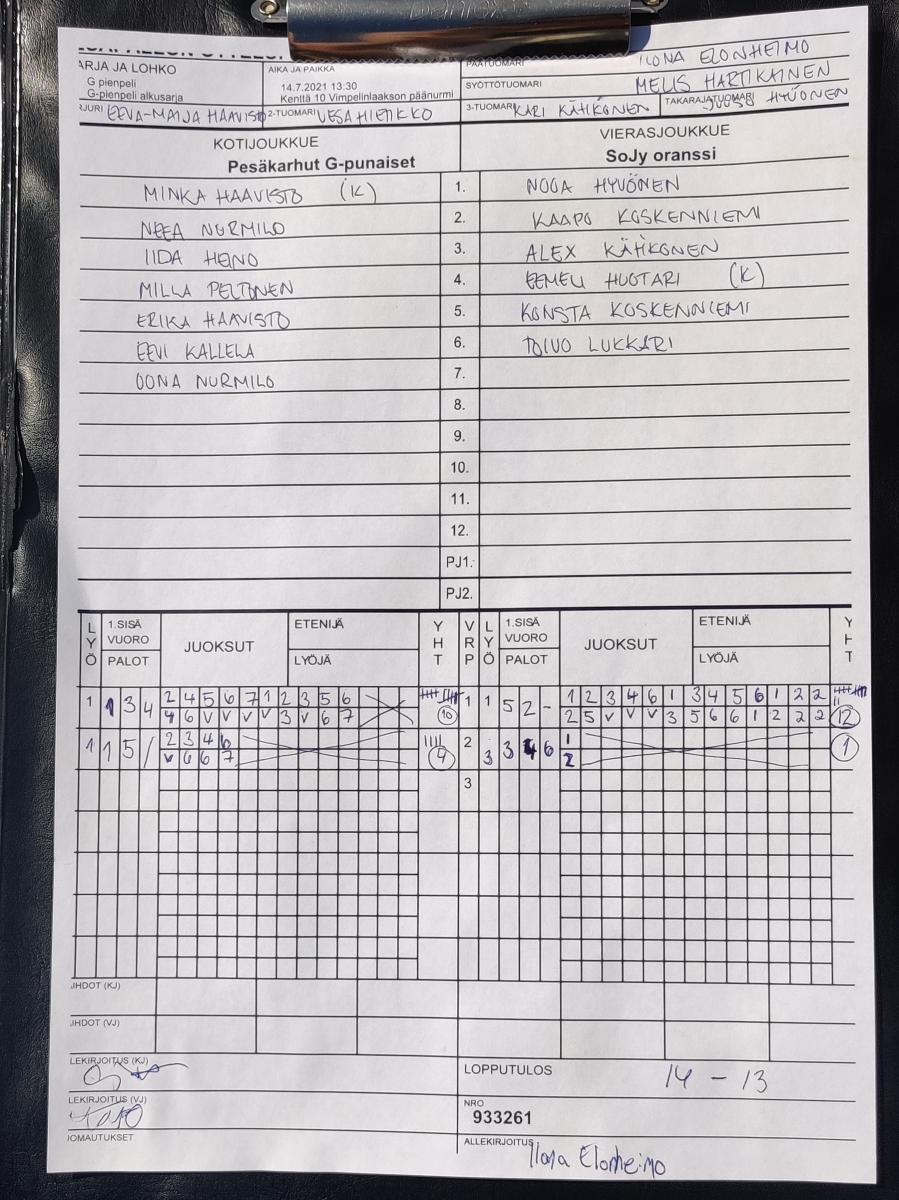 ARJA JA LOHKO
G pienpeli
G-pienpeli alkusarja
AIKA JA PAIKKA
14.7.2021 13:30
Kenttä 10 Vimpelinlaakson päänurmi
PÄÄTUOMARI ILONA ELONHEIMO
SYÖTTÖTUOMARI MELIS HARTIKAINEN
JURI EEVA-MAIJA HAAVISTO 2-TUOMARI VESA HIETIKKO 3-TUOMARI KARI KÄHKÖNEN TAKARAJATUOMARI JUSSI HYVÖNEN
KOTIJOUKKUE VIERASJOUKKUE
Pesäkarhut G-punaiset SoJy oranssi
MINKA HAAVISTO (K) 1. NOOA HYVÖNEN
NEEA NURMILO 2. KAAPO KOSKENNIEMI
IIDA HEINO 3. ALEX KÄHKÖNEN
MILLA PELTONEN 4. EEMELI HUOTARI (K)
ERIKA HAAVISTO 5. KONSTA KOSKENNIEMI
EEVI KALLELA 6. TOIVO LUKKARI
OONA NURMILO 7.
8.
9.
10.
11.
12.
PJ1.
PJ2.
LYÖ 1.SISÄ VUORO PALOT JUOKSUT ETENIJÄ LYÖJÄ YHT VRP LYÖ 1.SISÄ VUORO PALOT JUOKSUT ETENIJÄ LYÖJÄ YHT
1 1 3 4 2 4 5 6 7 1 2 3 5 6 1 1 5 2 - 1 2 3 4 6 1 3 4 5 6 1 2 2
4 6 V V V V 3 V 6 7 10 2 5 V V V 3 5 6 6 1 2 2 2 12
1 1 5 / 2 3 4 6 2 3 3 4 6 1
V 6 6 7 4 2 1
3
JHDOT (KJ)
JHDOT (VJ)
LEKIRJOITUS (KJ)
LOPPUTULOS 14 - 13
LEKIRJOITUS (VJ)
NRO
933261
IOMAUTUKSET
ALLEKIRJOITUS Ilona Elonheimo